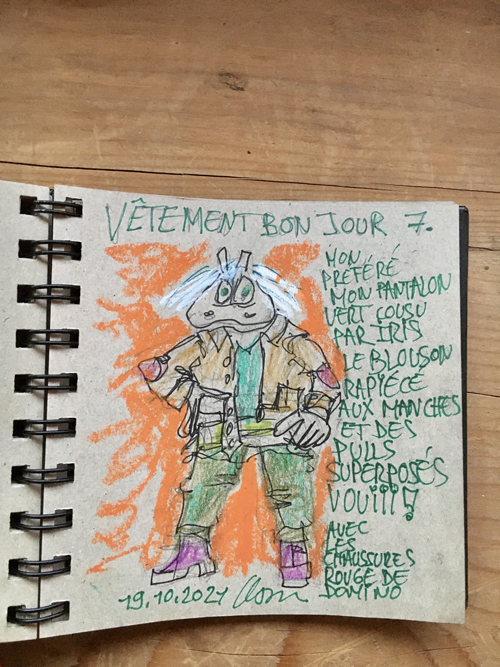 VÊTEMENT BON JOUR 7.
MON
PRÉFÉRÉ
MON PANTALON
VERT COUSU
PAR IRIS
LE BLOUSON
RAPIÉCÉ
AUX MANCHES
ET DES
PULLS
SUPERPOSÉS
VOUIIII!
AVEC
LES
CHAUSSURES
ROUGE DE
DOMINO
19.10.2021